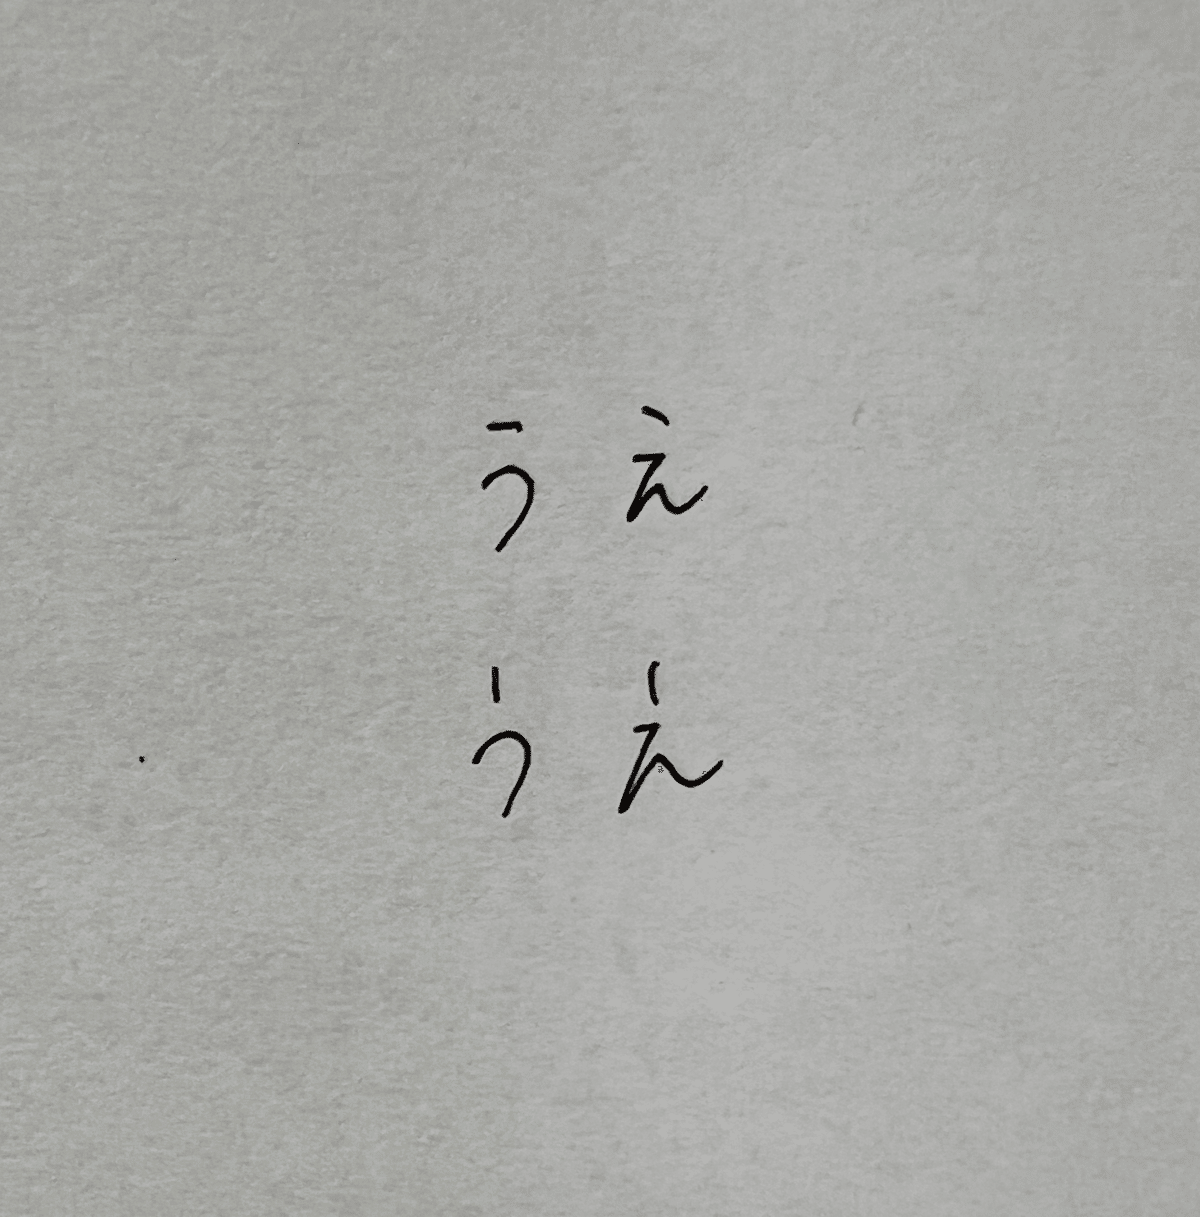 うえ
うえ